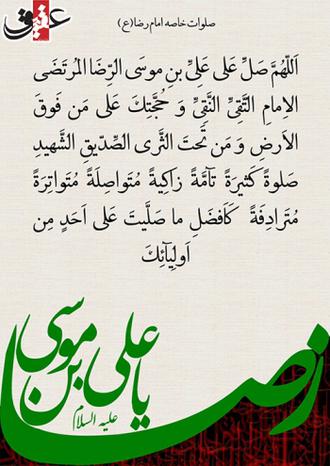 عقیق
صلوات خاصه امام رضا(ع)
اَللّهُمَّ صَلِّ عَلی عَلِیِّ بنِ موسَی الرِّضَا المُرتَضَی
الاِمامِ التَّقِیِّ النَّقِیِّ وَ حُجَّتِکَ عَلی مَن فَوقَ
الاَرضِ وَ مَن تَحتَ الثَّری الصِّدّیقِ الشَّهیدِ
صَلوةً کَثیرَةً تآمَّةً زاکِیَةً مُتَواصِلَةً مُتَواتِرَةً
مُتَرادِفَةً کَاَفضَلِ ما صَلَّیتَ عَلی اَحَدٍ مِن
اَولِیآئِکَ
یا علی بن موسی
رضا
علیه السلام